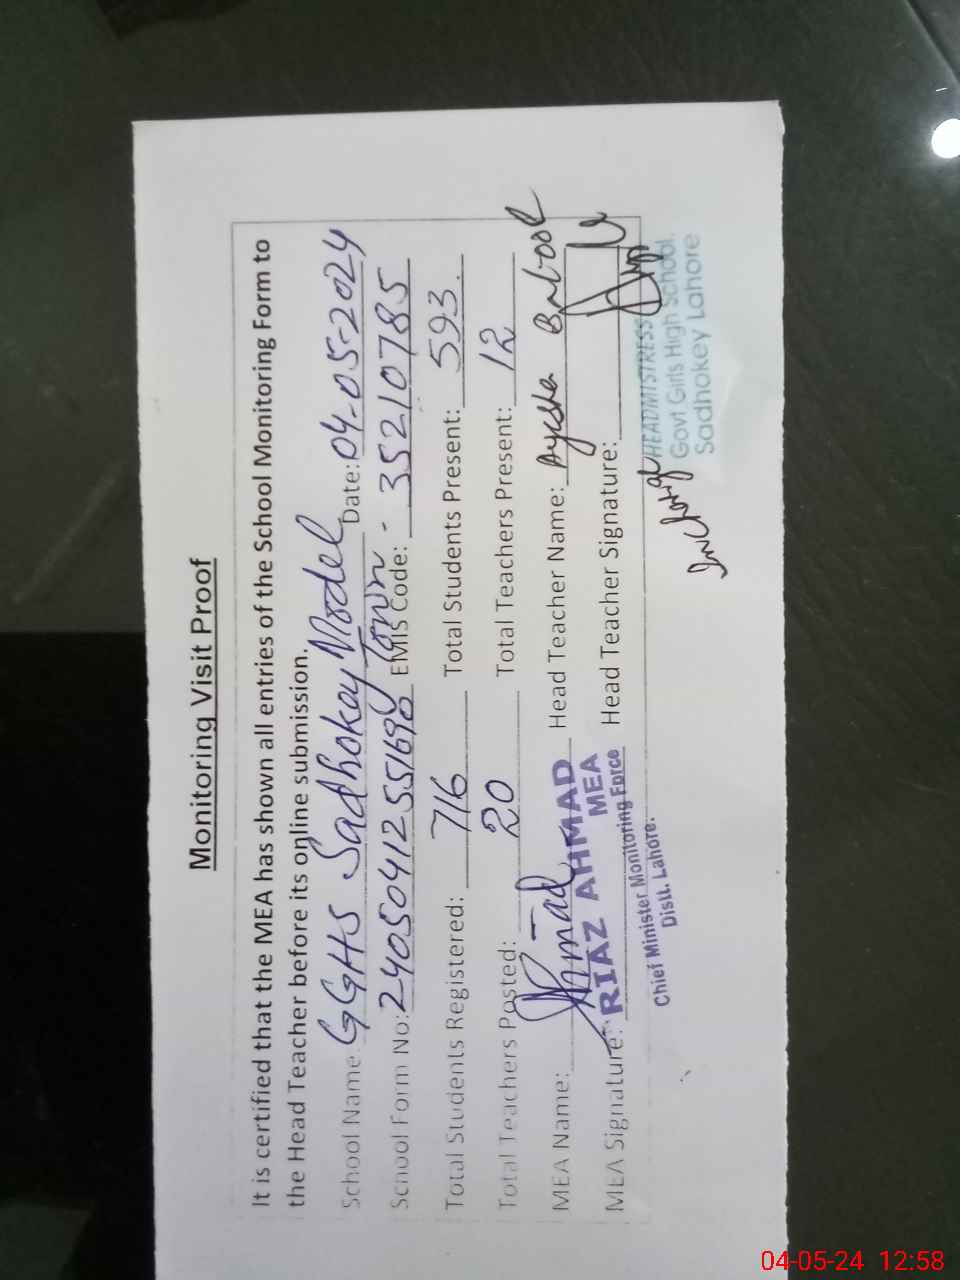 Monitoring Visit Proof
It is certified that the MEA has shown all entries of the School Monitoring Form to
the Head Teacher before its online submission.
School Name: GGHS Sadhokey Model Town Date: 04-05-2024
School Form No: 240504125551690 EMIS Code: - 35210785
Total Students Registered: 716 Total Students Present: 593.
Total Teachers Posted: 20 Total Teachers Present: 12
MEA Name: Ahmad Head Teacher Name: Ayesha
MEA Signature: Head Teacher Signature:
RIAZ AHMAD
MEA
Chief Minister Monitoring Force
Distt. Lahore.
Incharge HEADMISTRESS
Govt Girls High School.
Sadhokey Lahore
04-05-24 12:58